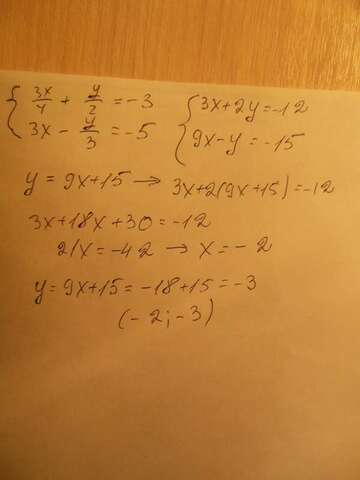 { 3x/4 + y/2 = -3 { 3x+2y=-12
3x - y/3 = -5 9x-y=-15
y = 9x+15 → 3x+2(9x+15)=-12
3x+18x+30=-12
21x=-42 → x=-2
y=9x+15=-18+15=-3
(-2;-3)